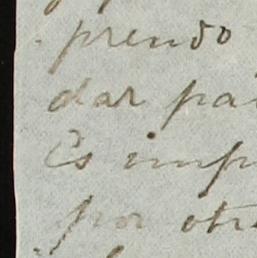 prendo
dar pa
Es imp
por otr